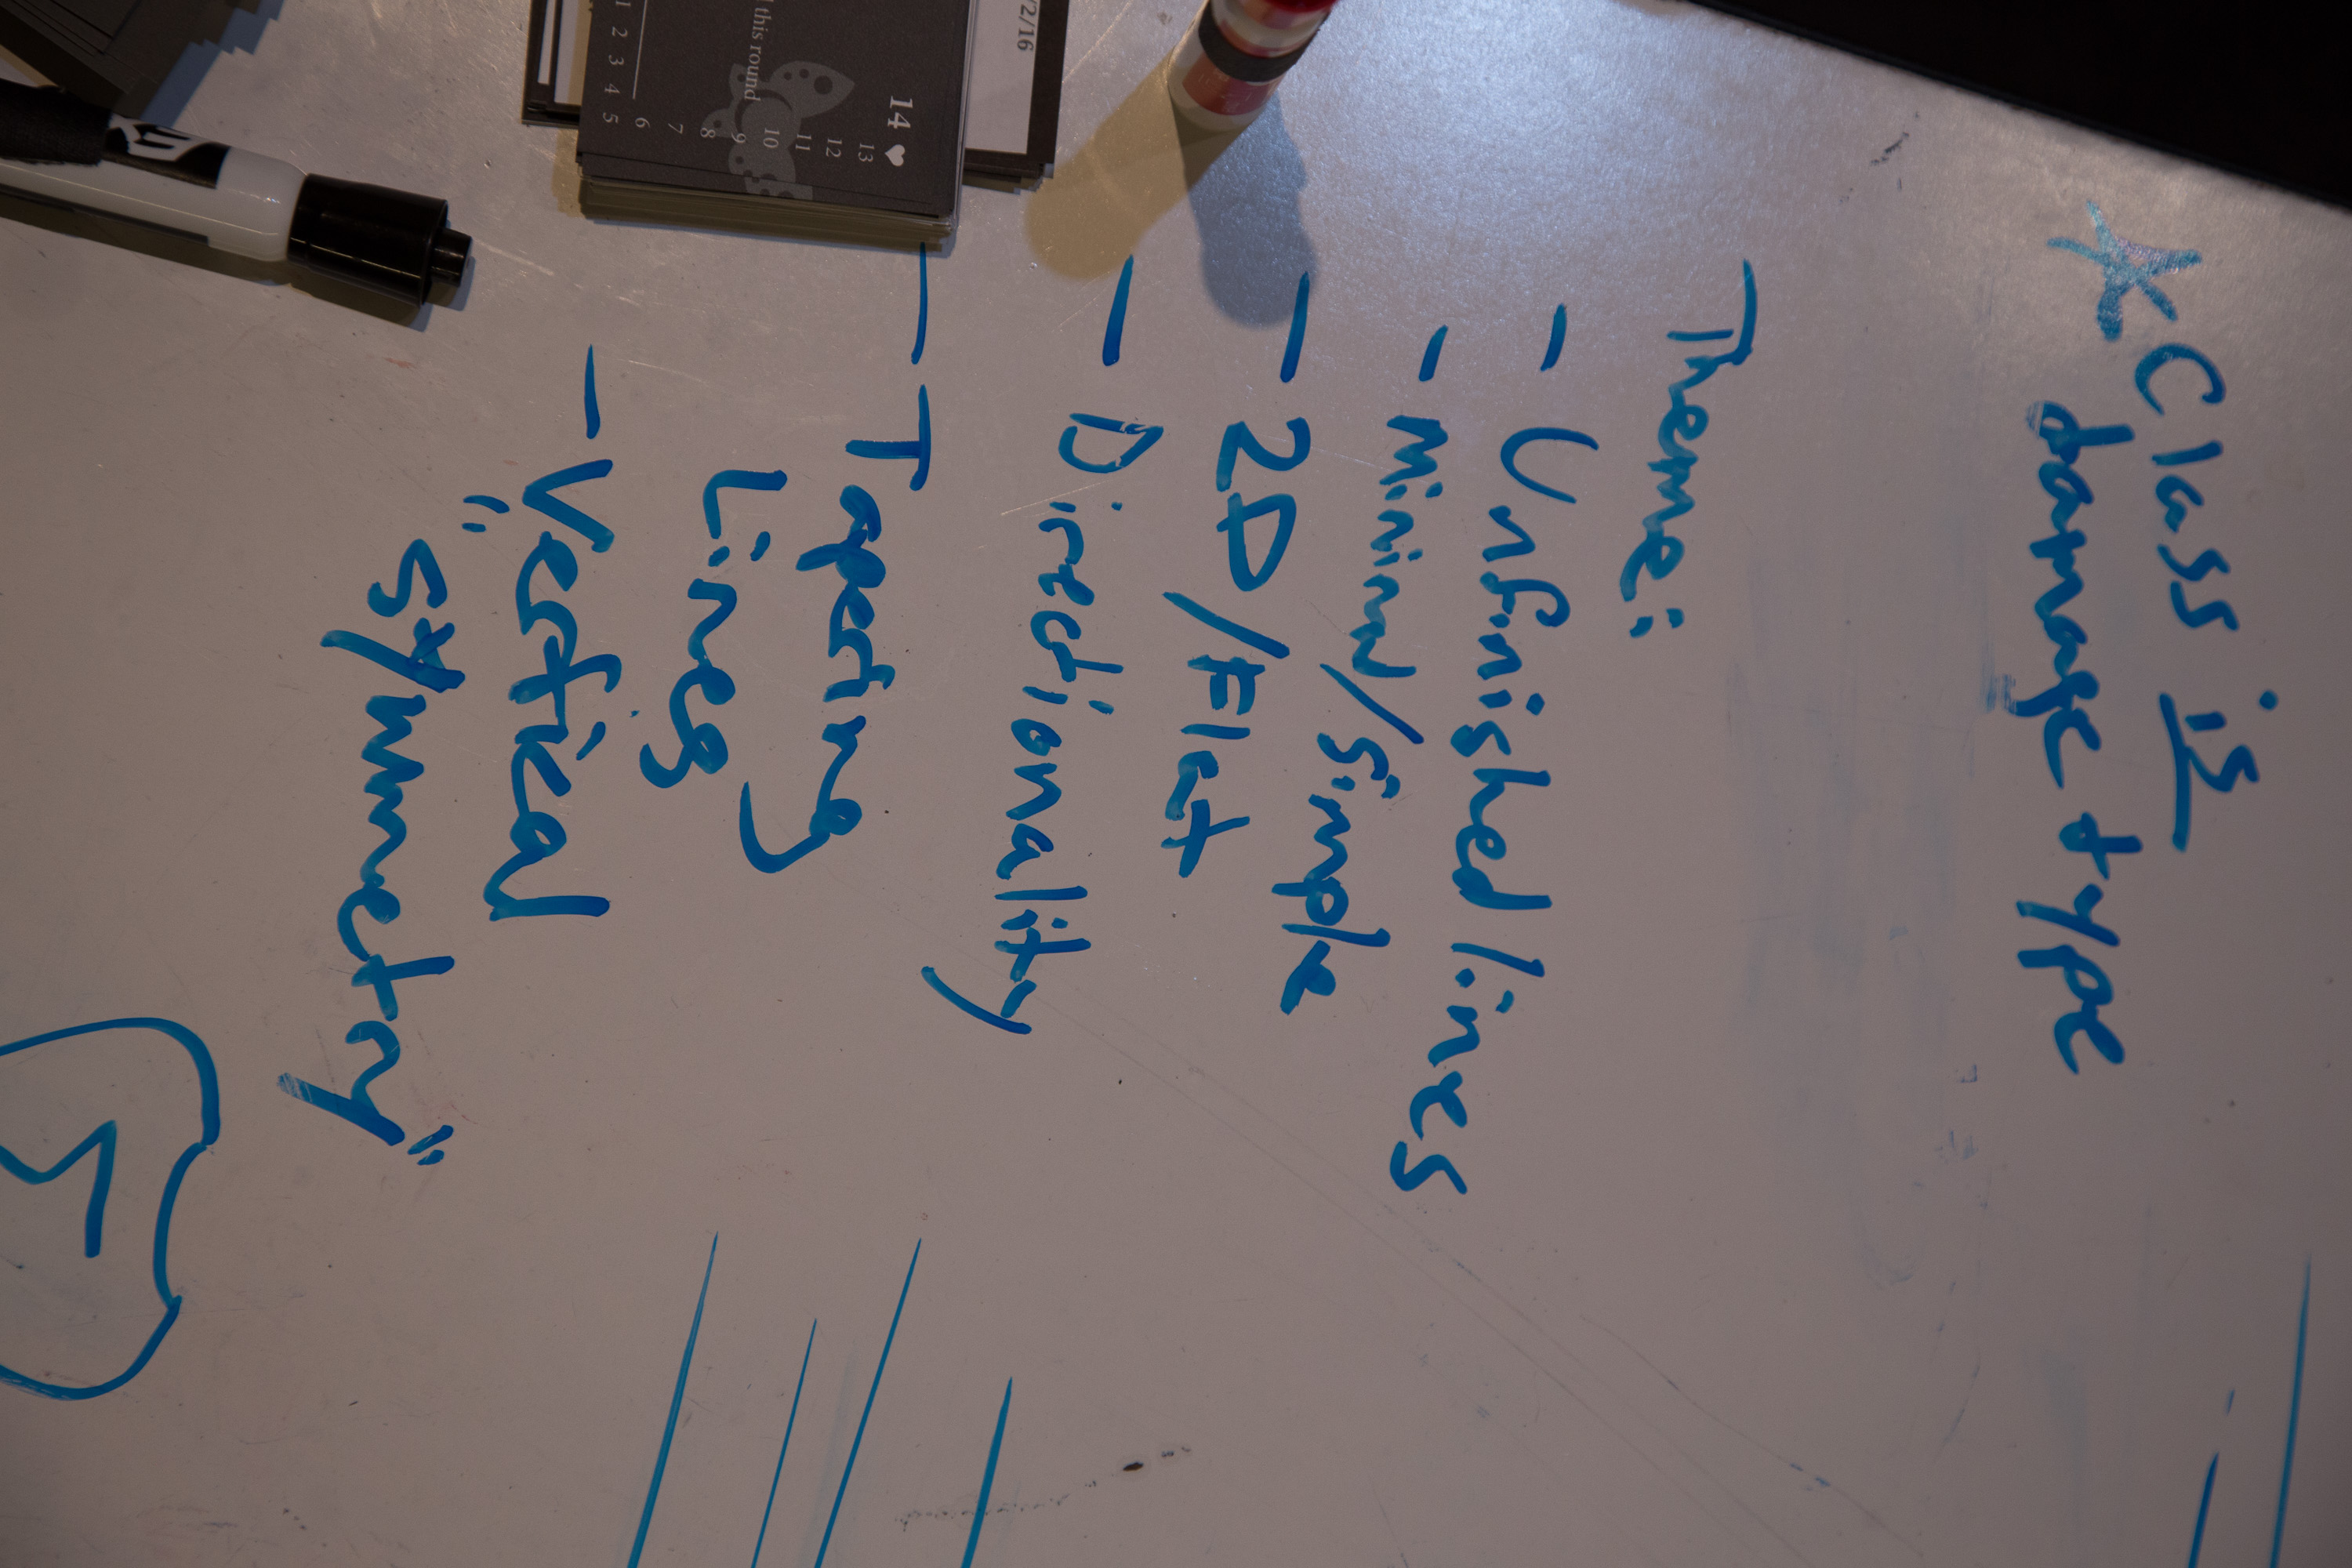 * Class is
damage type
Theme:
- Unfinished lines
- Minimal/Simple
- 2D/Flat
- Directionality
- Tapering
Lines
- Vertical
"symmetry"
this round
14 ♥
13
12
11
10
9
8
7
6
1 2 3 4 5
2/16